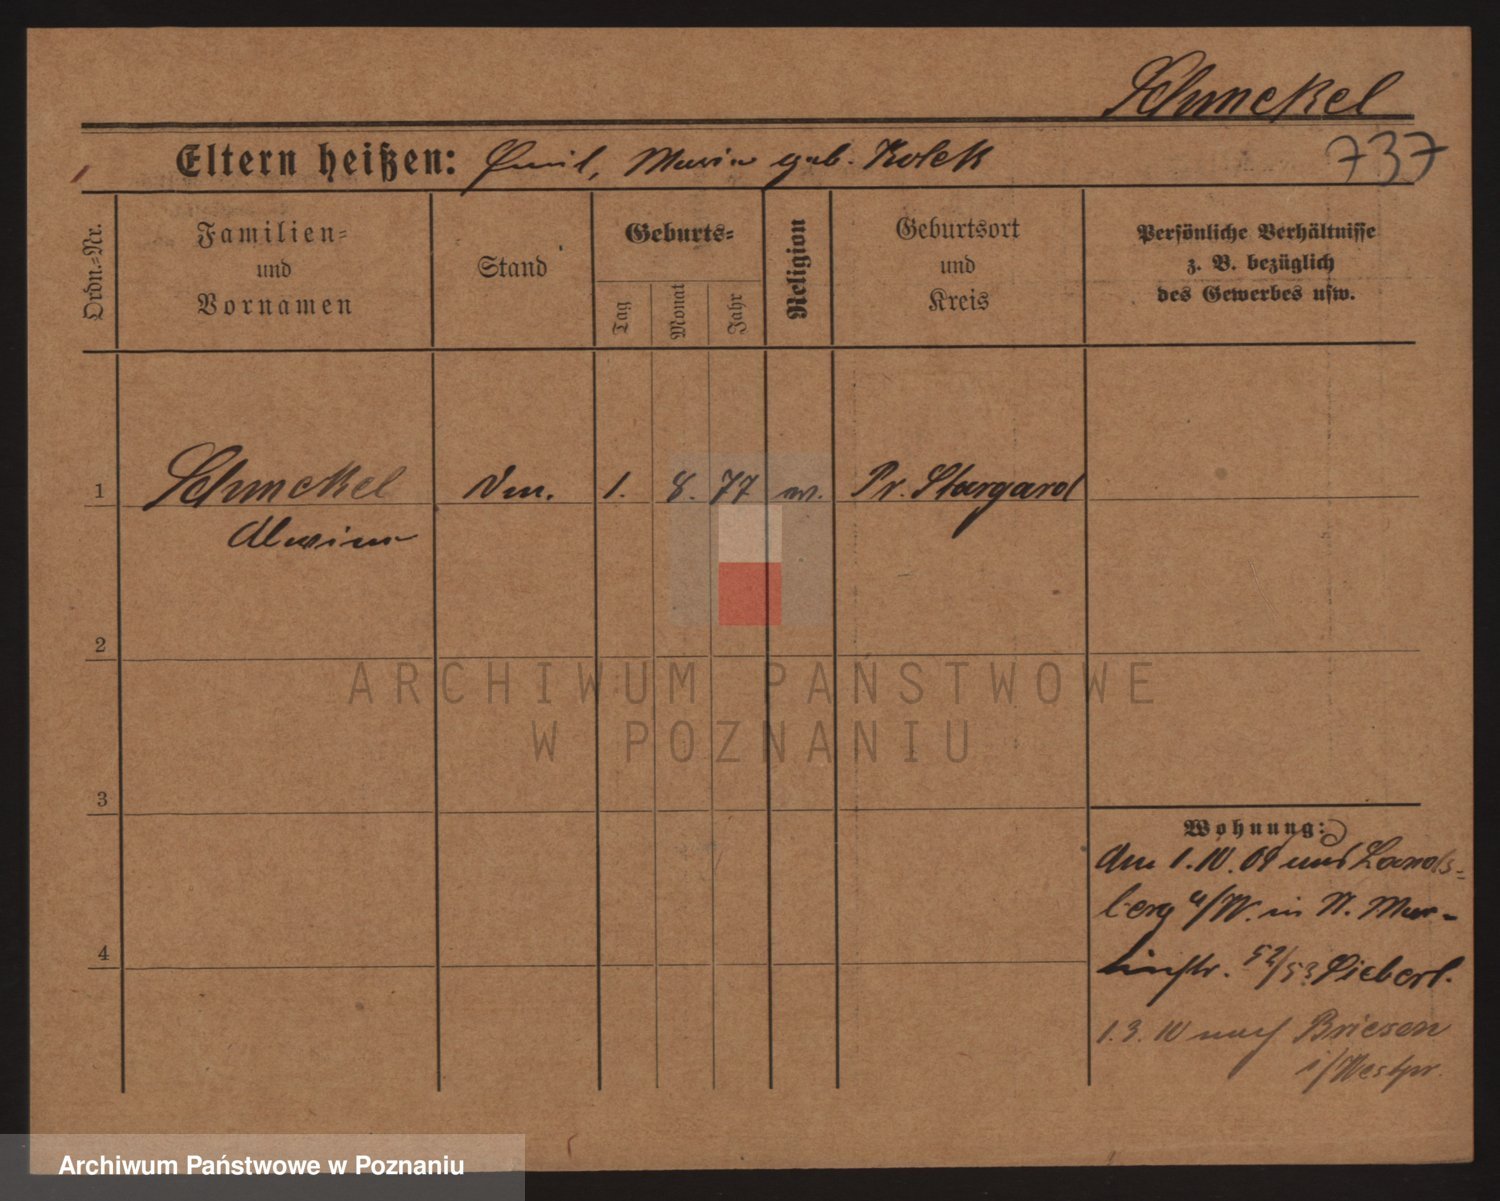 Schmekel
737
Eltern heißen: Emil, Maria geb. Kolek
Ordn.=Nr.
Familien=
und
Vornamen
Stand
Geburts=
Tag
Monat
Jahr
Religion
Geburtsort
und
Kreis
Persönliche Verhältnisse
z. B. bezüglich
des Gewerbes usw.
1 Schmekel 1. 8. 77 Pr. Stargard
Alwine
2
3
4
Wohnung:
Am 1. IV. 09 aus Lands=
berg a/W. in St. Mar=
tinstr. 52/53
1. 3. 10 nach Briesen
i/Westpr.
ARCHIWUM PAŃSTWOWE
W POZNANIU
Archiwum Państwowe w Poznaniu